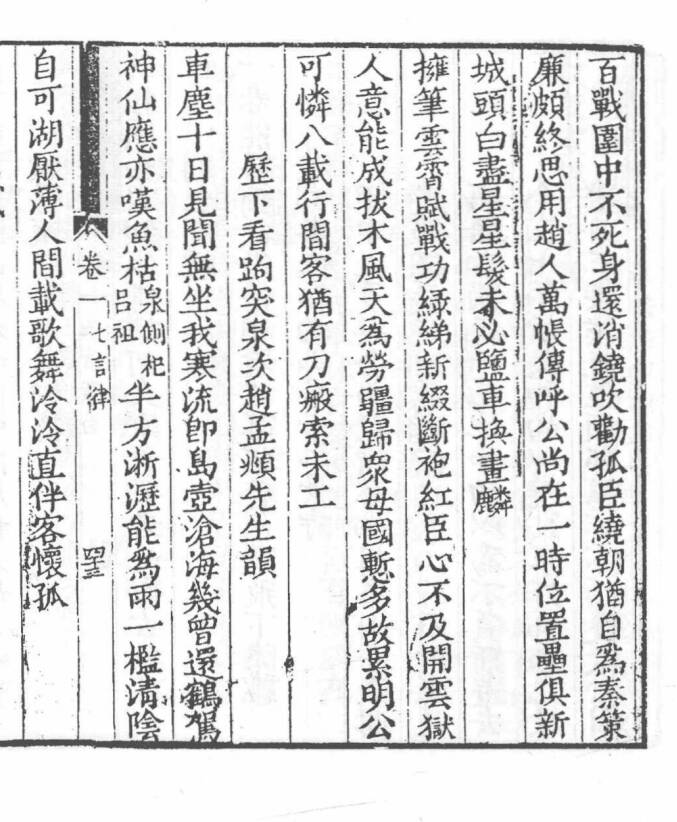 百戰圍中不死身還消鐃吹勸孤臣繞朝猶自爲秦策
廉頗終思用趙人萬帳傳呼公尚在一時位置壘俱新
城頭白盡星星髮未必鹽車換畫麟
擁筆雲霄賦戰功綠綈新綴斷袍紅臣心不及開雲獄
人意能成拔木風天爲勞疆歸衆母國慙多故累明公
可憐八載行間客猶有刀瘢索未工
歷下看趵突泉次趙孟頫先生韻
車塵十日見聞無坐我寒流卽島壺滄海幾曾還鶴駕
神仙應亦嘆魚枯泉側祀呂祖半方淅瀝能爲雨一檻淸陰
卷一 七言律 四十三
自可湖厭薄人間載歌舞泠泠直伴客懷孤